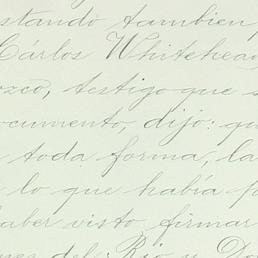 stando tambien
Cárlos Whitehead
ozco, testigo que s
ocumento, dijo: qu
toda forma, la
lo que había p
aber visto firmar
del Rio y Do